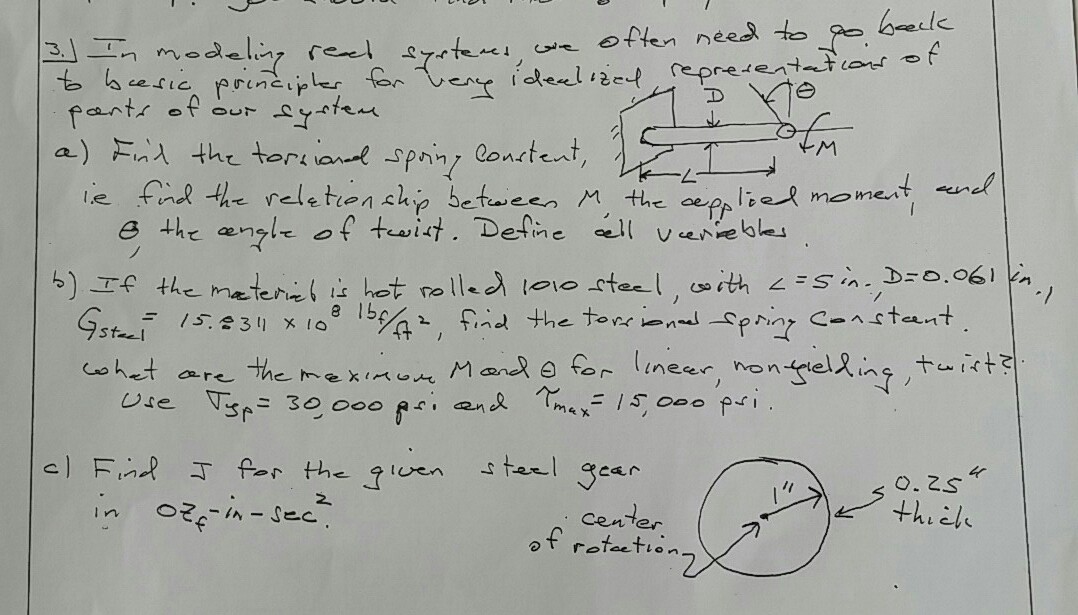 3.) In modeling real systems, we often need to go back
to basic principles for very idealized representations of
parts of our system
D
θ
a) Find the torsional spring constant,
M
L
ie find the relationship between M, the applied moment, and
θ, the angle of twist. Define all variables.
b) If the material is hot rolled 1010 steel, with L = 5 in., D=0.061 in.,
G steel = 15.8311 x 10⁸ lbf/ft², find the torsional spring constant.
what are the maximum M and θ for linear, non-yielding, twist?
Use σyp = 30,000 psi and τmax = 15,000 psi.
c) Find J for the given steel gear
in ozf-in-sec².
1"
0.25"
thick
center
of rotation